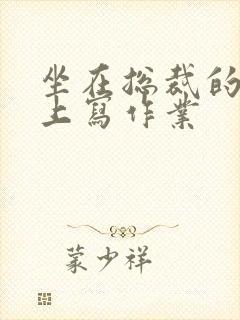 坐在捴裁的
上寫作業
蒙少祥